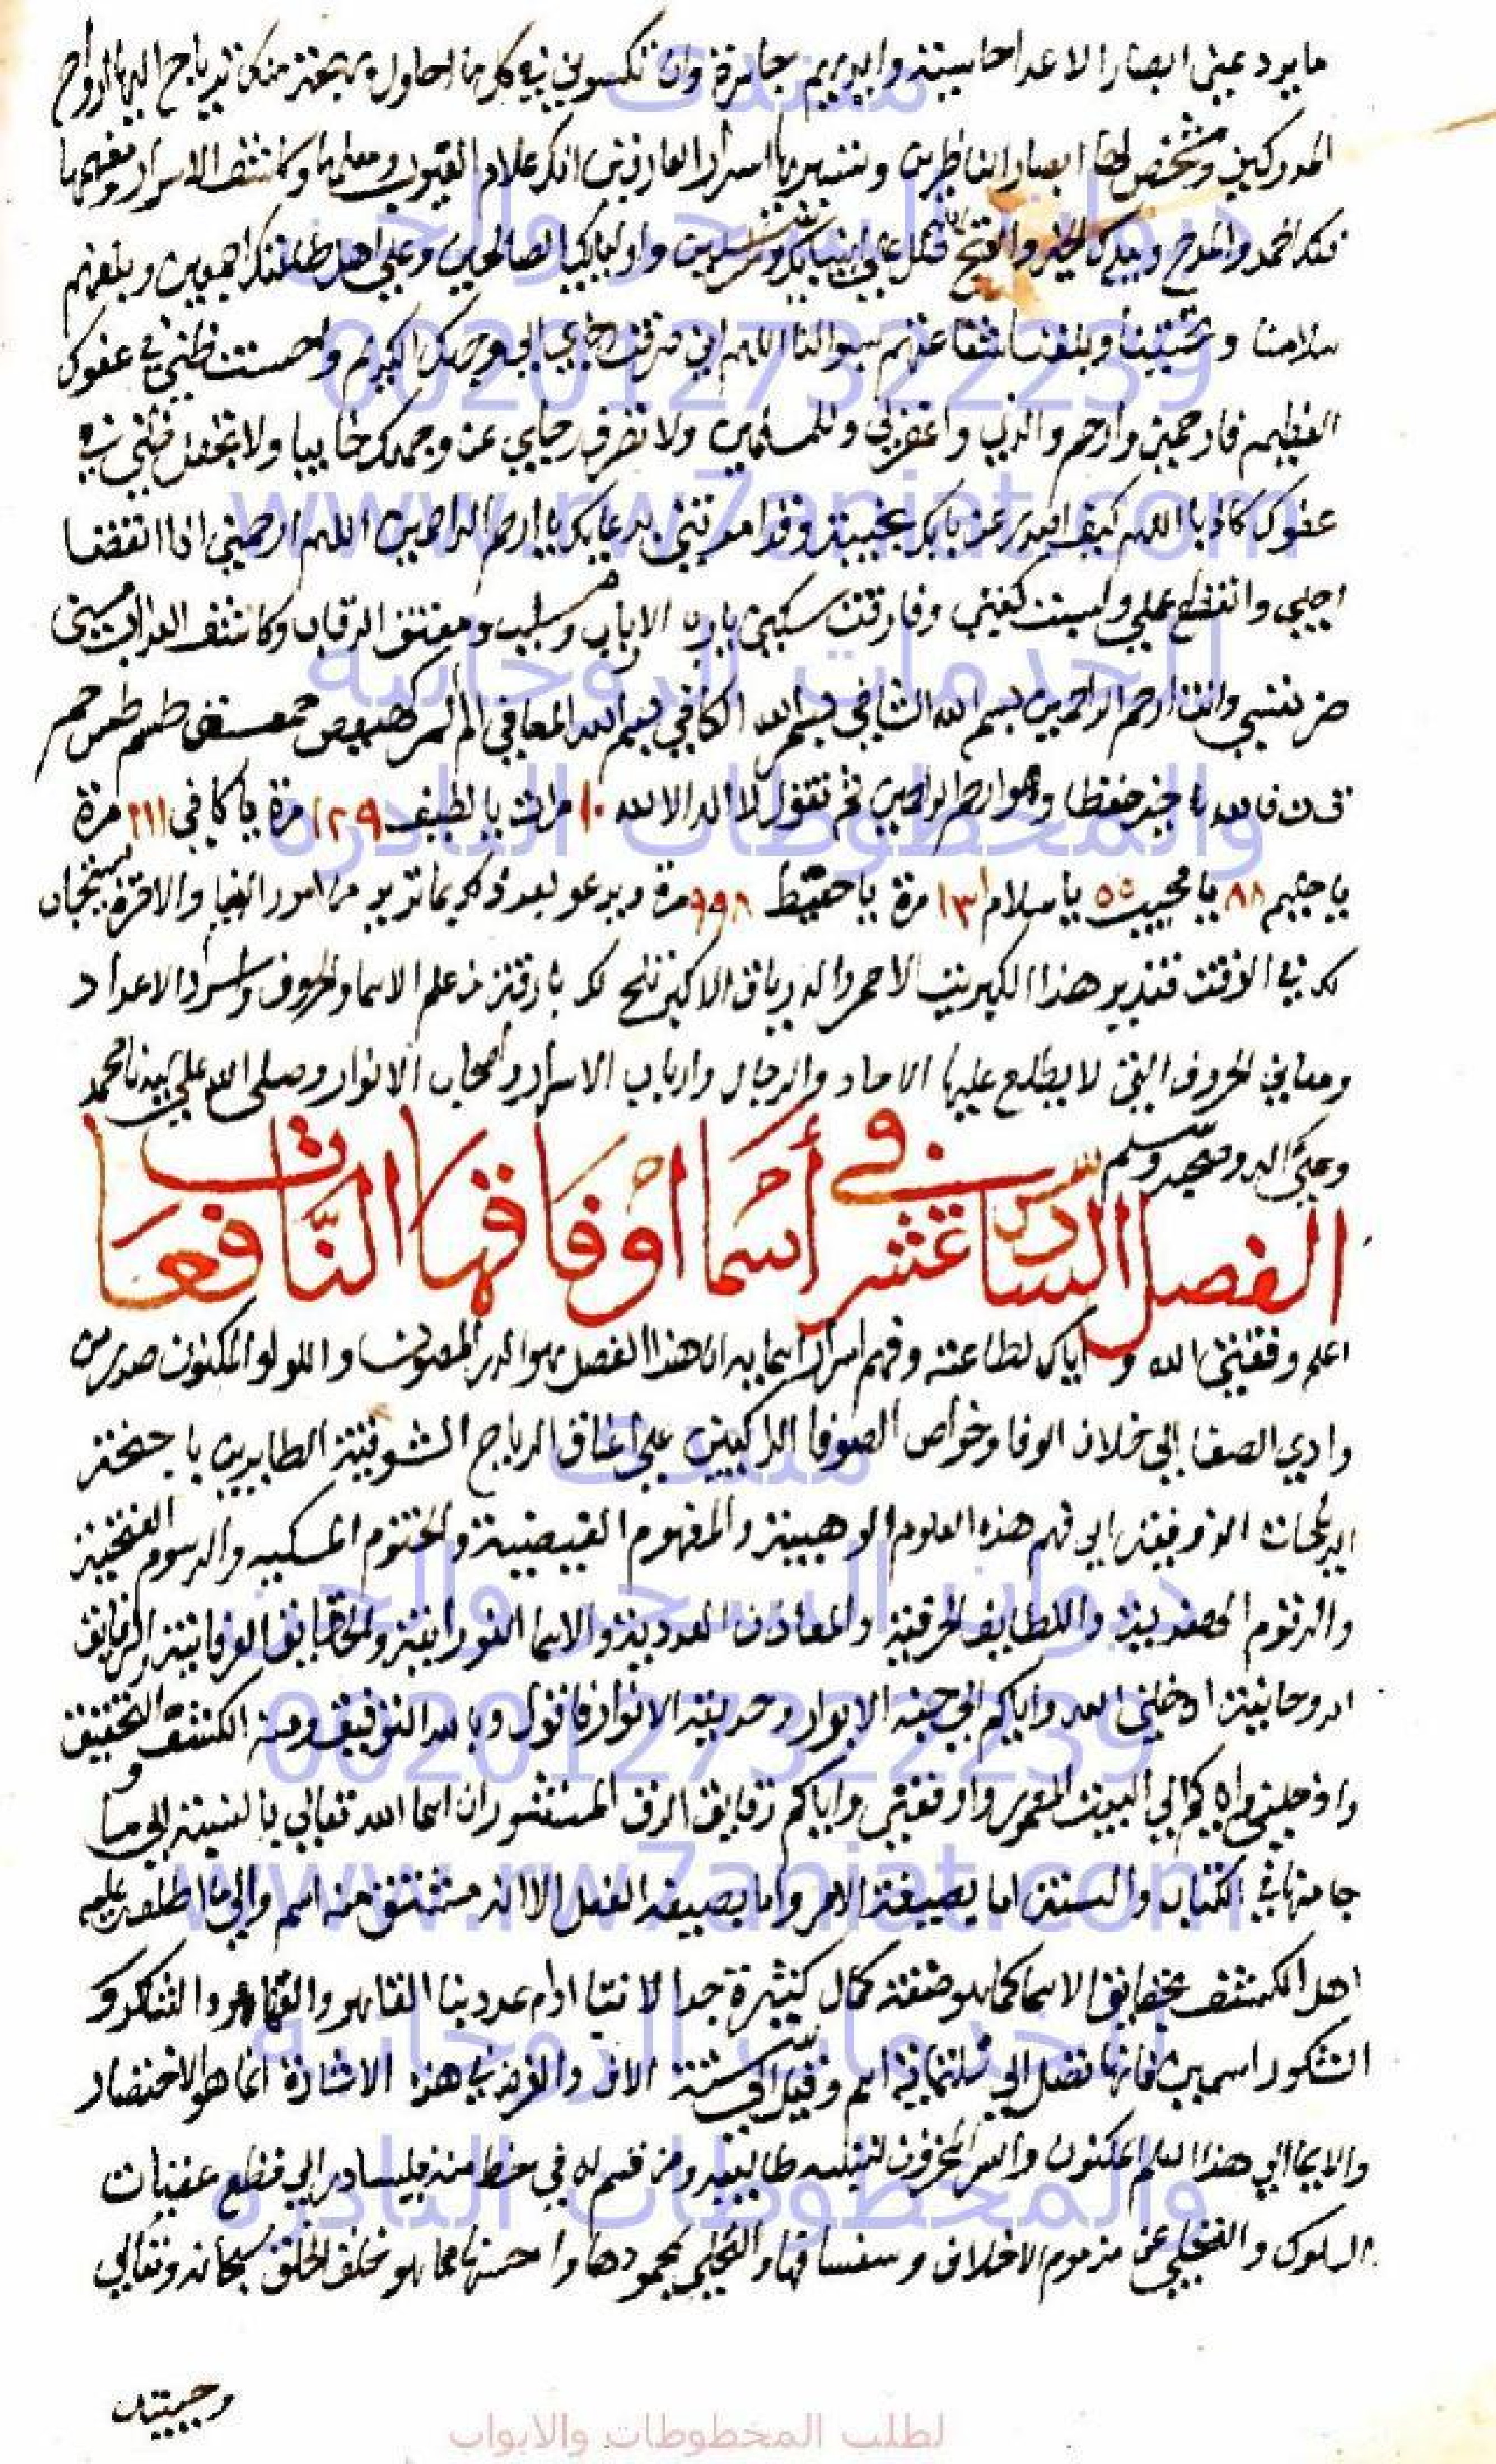 ما يرد عني ابصار الاعدا خاسية وايديهم وان تكسوني في كل ما احاول بهجة منك تتدباج اليها ارواح
المدركين وتشخص لها ابصار الناظرين اسرار العارفين انك علام الغيوب ومعلمها وكاشف الاسرار ومفهمها
فلك الحمد والمدح وبيدك الخير والفتح على انبيايك والمرسلين واوليايك الصالحين وعلى اهل طاعتك اجمعين وبلغهم
سلامنا وتحيتنا وبلغنا شفاعتهم سوالنا اللهم اني صرفت رجاي الى وجهك الكريم واحسنت ظني في عفوك
العظيم فارحمني وارحم والدي واغفر لي وللمسلمين ولا تصرف رجاي عن وجهك خايبا ولا تجعل ظني في
عفوك كاذبا اللهم كيف عن بابك بخيبة وقد امرتني بدعايك يا ارحم الراحمين اللهم ارحمني اذا انقضا
اجلي وانقطع عملي ولبست كفني وفارقت سكني يا رب الارباب ومعتق الرقاب وكاشف العذاب مسني
ضر وانت ارحم الراحمين بسم الله الشافي بسم الله الكافي بسم الله المعافي الم المر كهيعص حمعسق طسم طس حم
ق ن فالله خير حفظا وهو ارحم الراحمين ثم تقول لا اله الا الله ١٠ مرات يا لطيف ١٢٩ مرة يا كافي ١١١ مرة
يا حليم ٨٨ يا مجيب ٥٥ يا سلام ١٣١ مرة يا حفيظ ٩٩٨ مرة ويدعو بعد ذلك بما تريد من امور الدنيا والاخرة يستجاب
لك في الوقت فتدبر هذا الكبريت الاحمر والدرياق الاكبر تلح لك بارقة من علم الاسما والحروف واسرار الاعداد
ومعاني الحروف التي لا يطلع عليها الا احاد والرجال وارباب الاسرار واصحاب الانوار وصلى الله على سيدنا محمد
وعلى اله وصحبه وسلم
الفصل السادس عشر في أسما اوفاقها النافعات
اعلم وفقني الله واياك لطاعته وفهم اسرار اسمايه ان هذا الفصل هو الدر المصون واللولو المكنون صدر من
وادي الصفا الى خلان الوفا وخواص الصوفا الراكبين على اعناق الرياح الشوقية الطايرين باجنحة
الذوقية الى فهم هذه العلوم الوهبية والمفهوم الفيضية والختوم المسكيه والرسوم الفتحية
والرقوم واللطايف الحرفية والمعادن العددية والاسما النورانية والحقايق العرفانية والرقايق
الروحانية ادخلني الله واياكم الى جنة الابرار وحديقة الانوار فاقول وبالله التوفيق ومنه الكشف والتحقيق
واياكم الى البيت المعمور واوقفني واياكم رقايق الرق المنشور ان اسما الله تعالى بالنسبة الى ما
جا منها في الكتاب والسنة اما بصيغة الامر واما بصيغة الفعل الا انه مشتق منه اسم والى ما اطلع عليه
اهل الكشف بحقايق الاسما كما هو صفة كمال كثيرة جدا لا نتا ادم عددنا القاهر والقهار والشاكر و
الشكور اسمين فانها تصل الى ثلثماية اسم وقيل الى ستة الاف والغرض في هذه الاشارة انما هو الاختصار
والايما الى هذا العلم المكنون والسر المخزون لتنبيه طالبيه ومن قسم له في حظ منه فليبادر الى قطع عقبات
السلوك والتخلي عن مذموم الاخلاق وسفسافها والتحلي بمحمودها واحسنها مما هو تخلق الخلق سبحانه وتعالى
وجيبته
منتدى
ديوان السحر والجن
0020127322239
www.rw7aniat.com
للخدمات الروحانية
والمخطوطات النادرة
منتدى
ديوان السحر والجن
0020127322239
www.rw7aniat.com
للخدمات الروحانية
والمخطوطات النادرة
لطلب المخطوطات والابواب